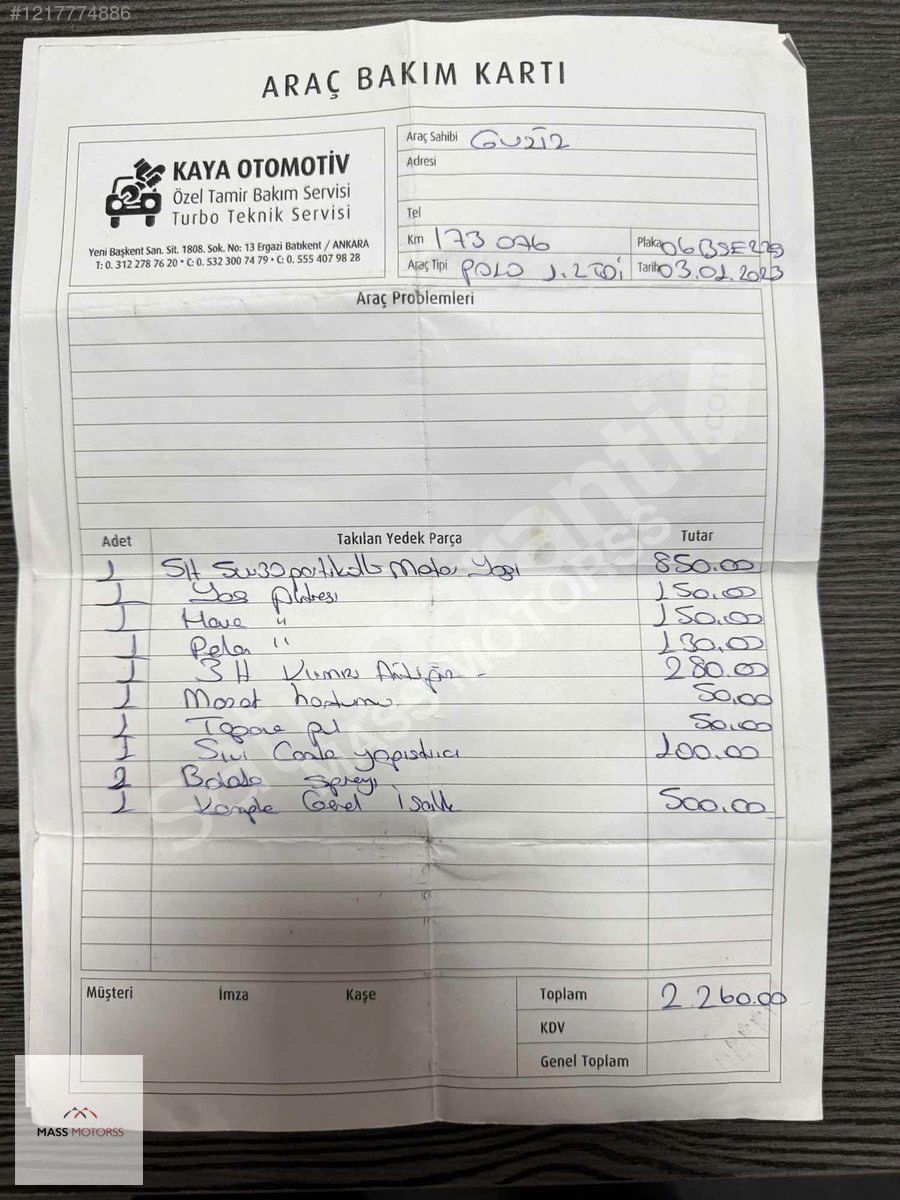 #1217774886
ARAÇ BAKIM KARTI
KAYA OTOMOTİV
Özel Tamir Bakım Servisi
Turbo Teknik Servisi
Yeni Başkent San. Sit. 1808. Sok. No: 13 Ergazi Batıkent / ANKARA
T: 0. 312 278 76 20 • C: 0. 532 300 74 79 • C: 0. 555 407 98 28
Araç Sahibi
Adresi
Tel
Km 173 076 Plaka 06 BSE 229
Araç Tipi POLO 1.2 TDİ Tarih 03.01.2023
Araç Problemleri
Adet Takılan Yedek Parça Tutar
1 5w30 Motor Yağı 850.00
1 Yağ filtresi 150.00
1 Hava " 150.00
1 Polen " 130.00
1 Kırmızı Antifiriz 280.00
1 Mazot hortumu 50.00
1 pul 50.00
1 Sıvı Conta yapıştırıcı 100.00
2 Balata spreyi
1 Komple Genel 500.00
Müşteri İmza Kaşe Toplam 2.260.00
KDV
Genel Toplam
MASS MOTORSS
sahibinden.com
MASS MOTORSS